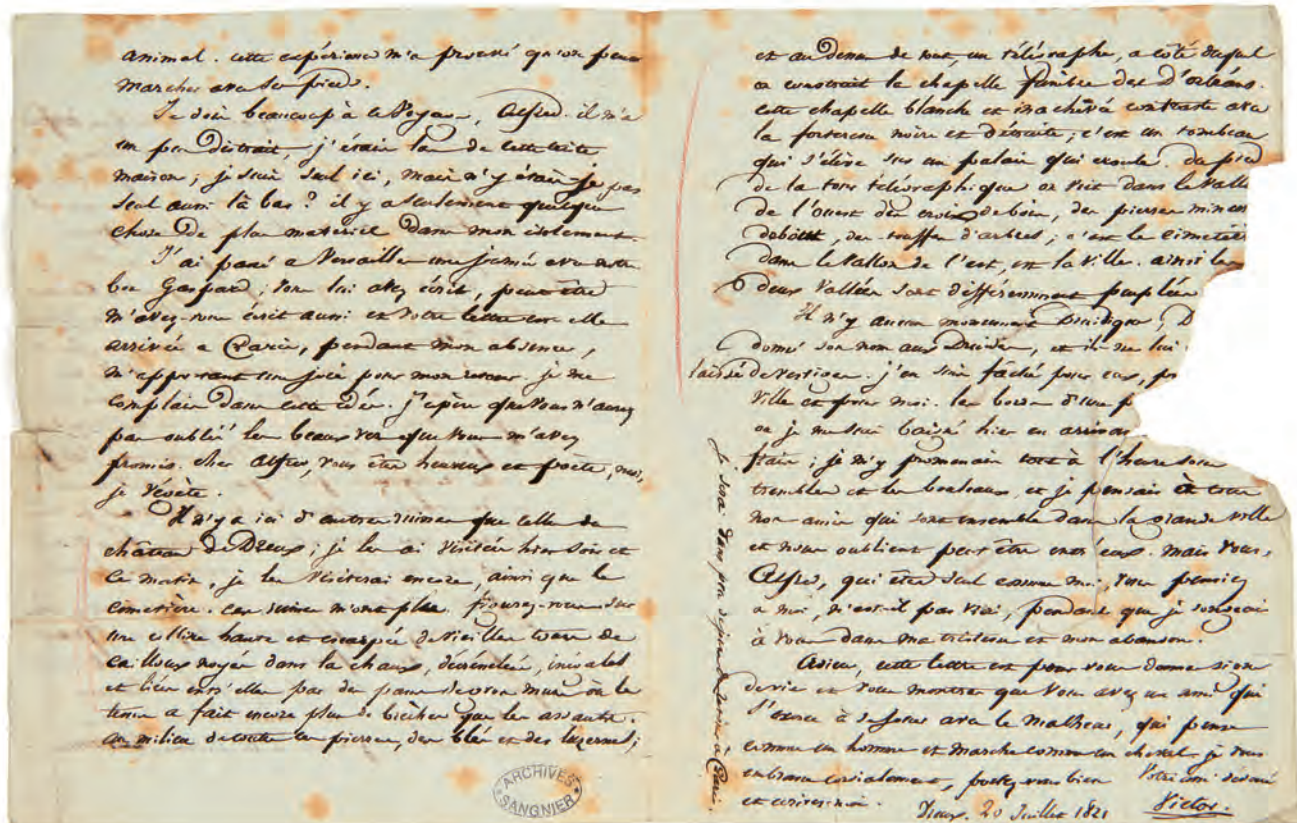 animal. cette expérience m'a prouvé qu'on peut
marcher avec ses pieds.
Je dois beaucoup à ce voyage, Alfred. il m'a
un peu distrait, j'étais las de cette triste
maison ; je suis seul ici, mais n'y étais-je pas
seul aussi là bas ? il y a seulement quelque
chose de plus matériel dans mon isolement.
J'ai passé à Versailles une journée avec notre
bon Gaspard ; vous lui avez écrit, peut-être
m'avez-vous écrit aussi et votre lettre est-elle
arrivée à Paris, pendant mon absence,
m'apprêtant une joie pour mon retour. je me
complais dans cette idée. j'espère que vous n'aurez
pas oublié les beaux vers que vous m'avez
promis. cher Alfred, vous êtes heureux et poète, moi,
je végète.
Il n'y a ici d'autres ruines que celles du
château de Dreux ; je les ai visitées hier soir et
ce matin, je les visiterai encore, ainsi que le
cimetière. ces ruines m'ont plu. figurez-vous sur
une colline haute et escarpée de vieilles tours de
cailloux noyés dans la chaux, décrénelées, inégales
et liées entr'elles par des pans de gros murs où le
tems a fait encore plus de brèches que les assauts.
au milieu de toutes ces pierres, des blés et des luzernes ;
et au dessus de tout, un télégraphe, à côté duquel
on construit la chapelle funèbre des D'orléans.
cette chapelle blanche et inachevée contraste avec
la forteresse noire et détruite ; c'est un tombeau
qui s'élève sur un palais qui croule. du pied
de la tour télégraphique on voit dans la vallé
de l'ouest des croix de bois, des pierres
debout, des touffes d'arbres ; c'est le cimetiè
dans le vallon de l'est, est la ville. ainsi les
deux vallées sont différemment peuplées
Il n'y a aucun monument Druidique, D
donné son nom aux Druides, et ils ne lui
laissé de vestiges. j'en suis fâché pour eux, po
ville et pour moi. les bords d'une
où je me suis baigné hier en arrivant,
frais ; je m'y promenais tout à l'heure sous
trembles et les bouleaux, et je pensais à tous
nos amis qui sont ensemble dans la grande ville
et nous oublient peut être entr'eux. mais vous,
Alfred, qui êtes seul comme moi, vous pensiez
à moi, n'est-il pas vrai, pendant que je songeais
à vous dans ma tristesse et mon abandon.
Adieu, cette lettre est pour vous donner signe
de vie et vous montrer que vous avez un ami qui
s'exerce à se jouer avec le malheur, qui pense
comme un homme et marche comme un cheval. je vous
embrasse cordialement, portez vous bien
et écrivez-moi.
Votre ami dévoué
Victor.
Dreux. 20 Juillet 1821
je serai dans peu de jours de retour à Paris.
ARCHIVES
SANGNIER